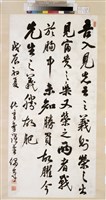 吾入見先王之義則榮之出
見富貴之樂又榮之兩者戰
於胸中未知勝負故臞今
先王之義勝故肥
戊辰初夏